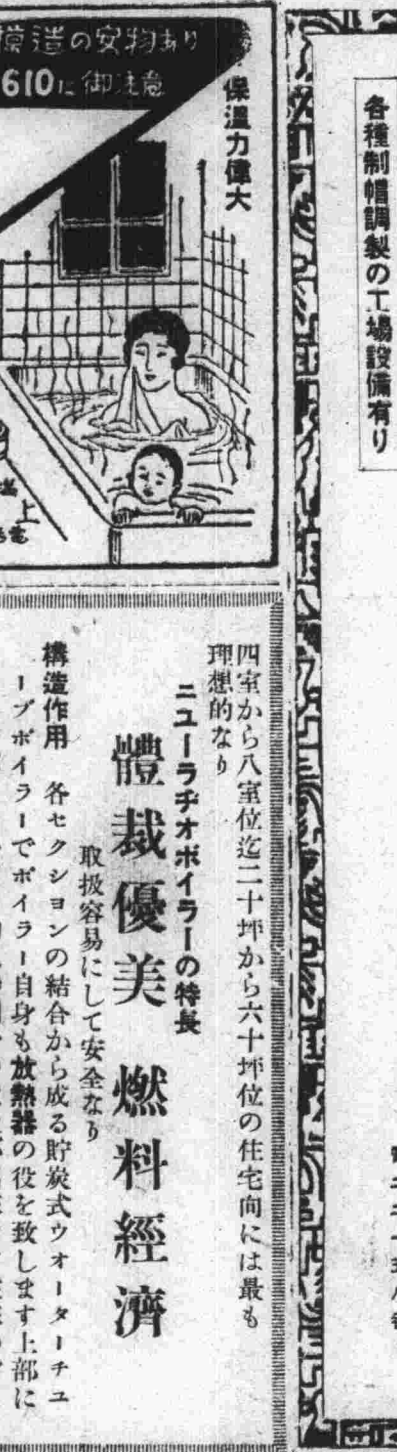 各種制帽調製の工場設備有り
模造の安物あり
610に御注意
保温力偉大
上
四室から八室位迄二十坪から六十坪位の住宅向には最も
理想的なり
ニューラヂオボイラーの特長
體裁優美 燃料經濟
取扱容易にして安全なり
構造作用 各セクションの結合から成る貯炭式ウオーターチユ
ーブボイラーでボイラー自身も放熱器の役を致します上部に